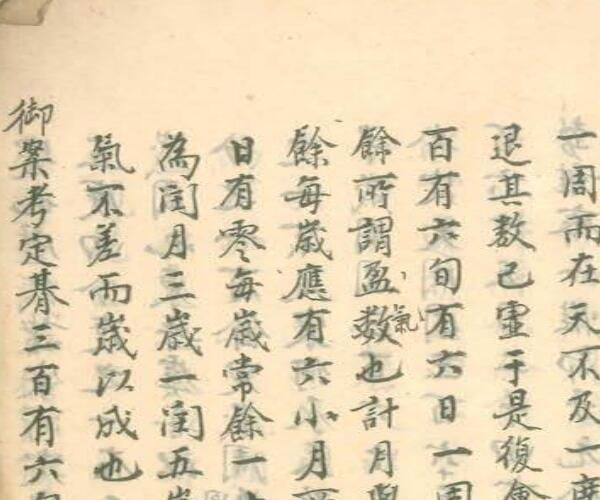 一周而在天不及一度
退其数已虚于是復會
百有六旬有六日一周
餘所謂盈数氣也計月與
餘每歲應有六小月
日有零每歲常餘一
為閏月三歲一閏五歲
氣不差而歲以成也
御案考定朞三百有六旬